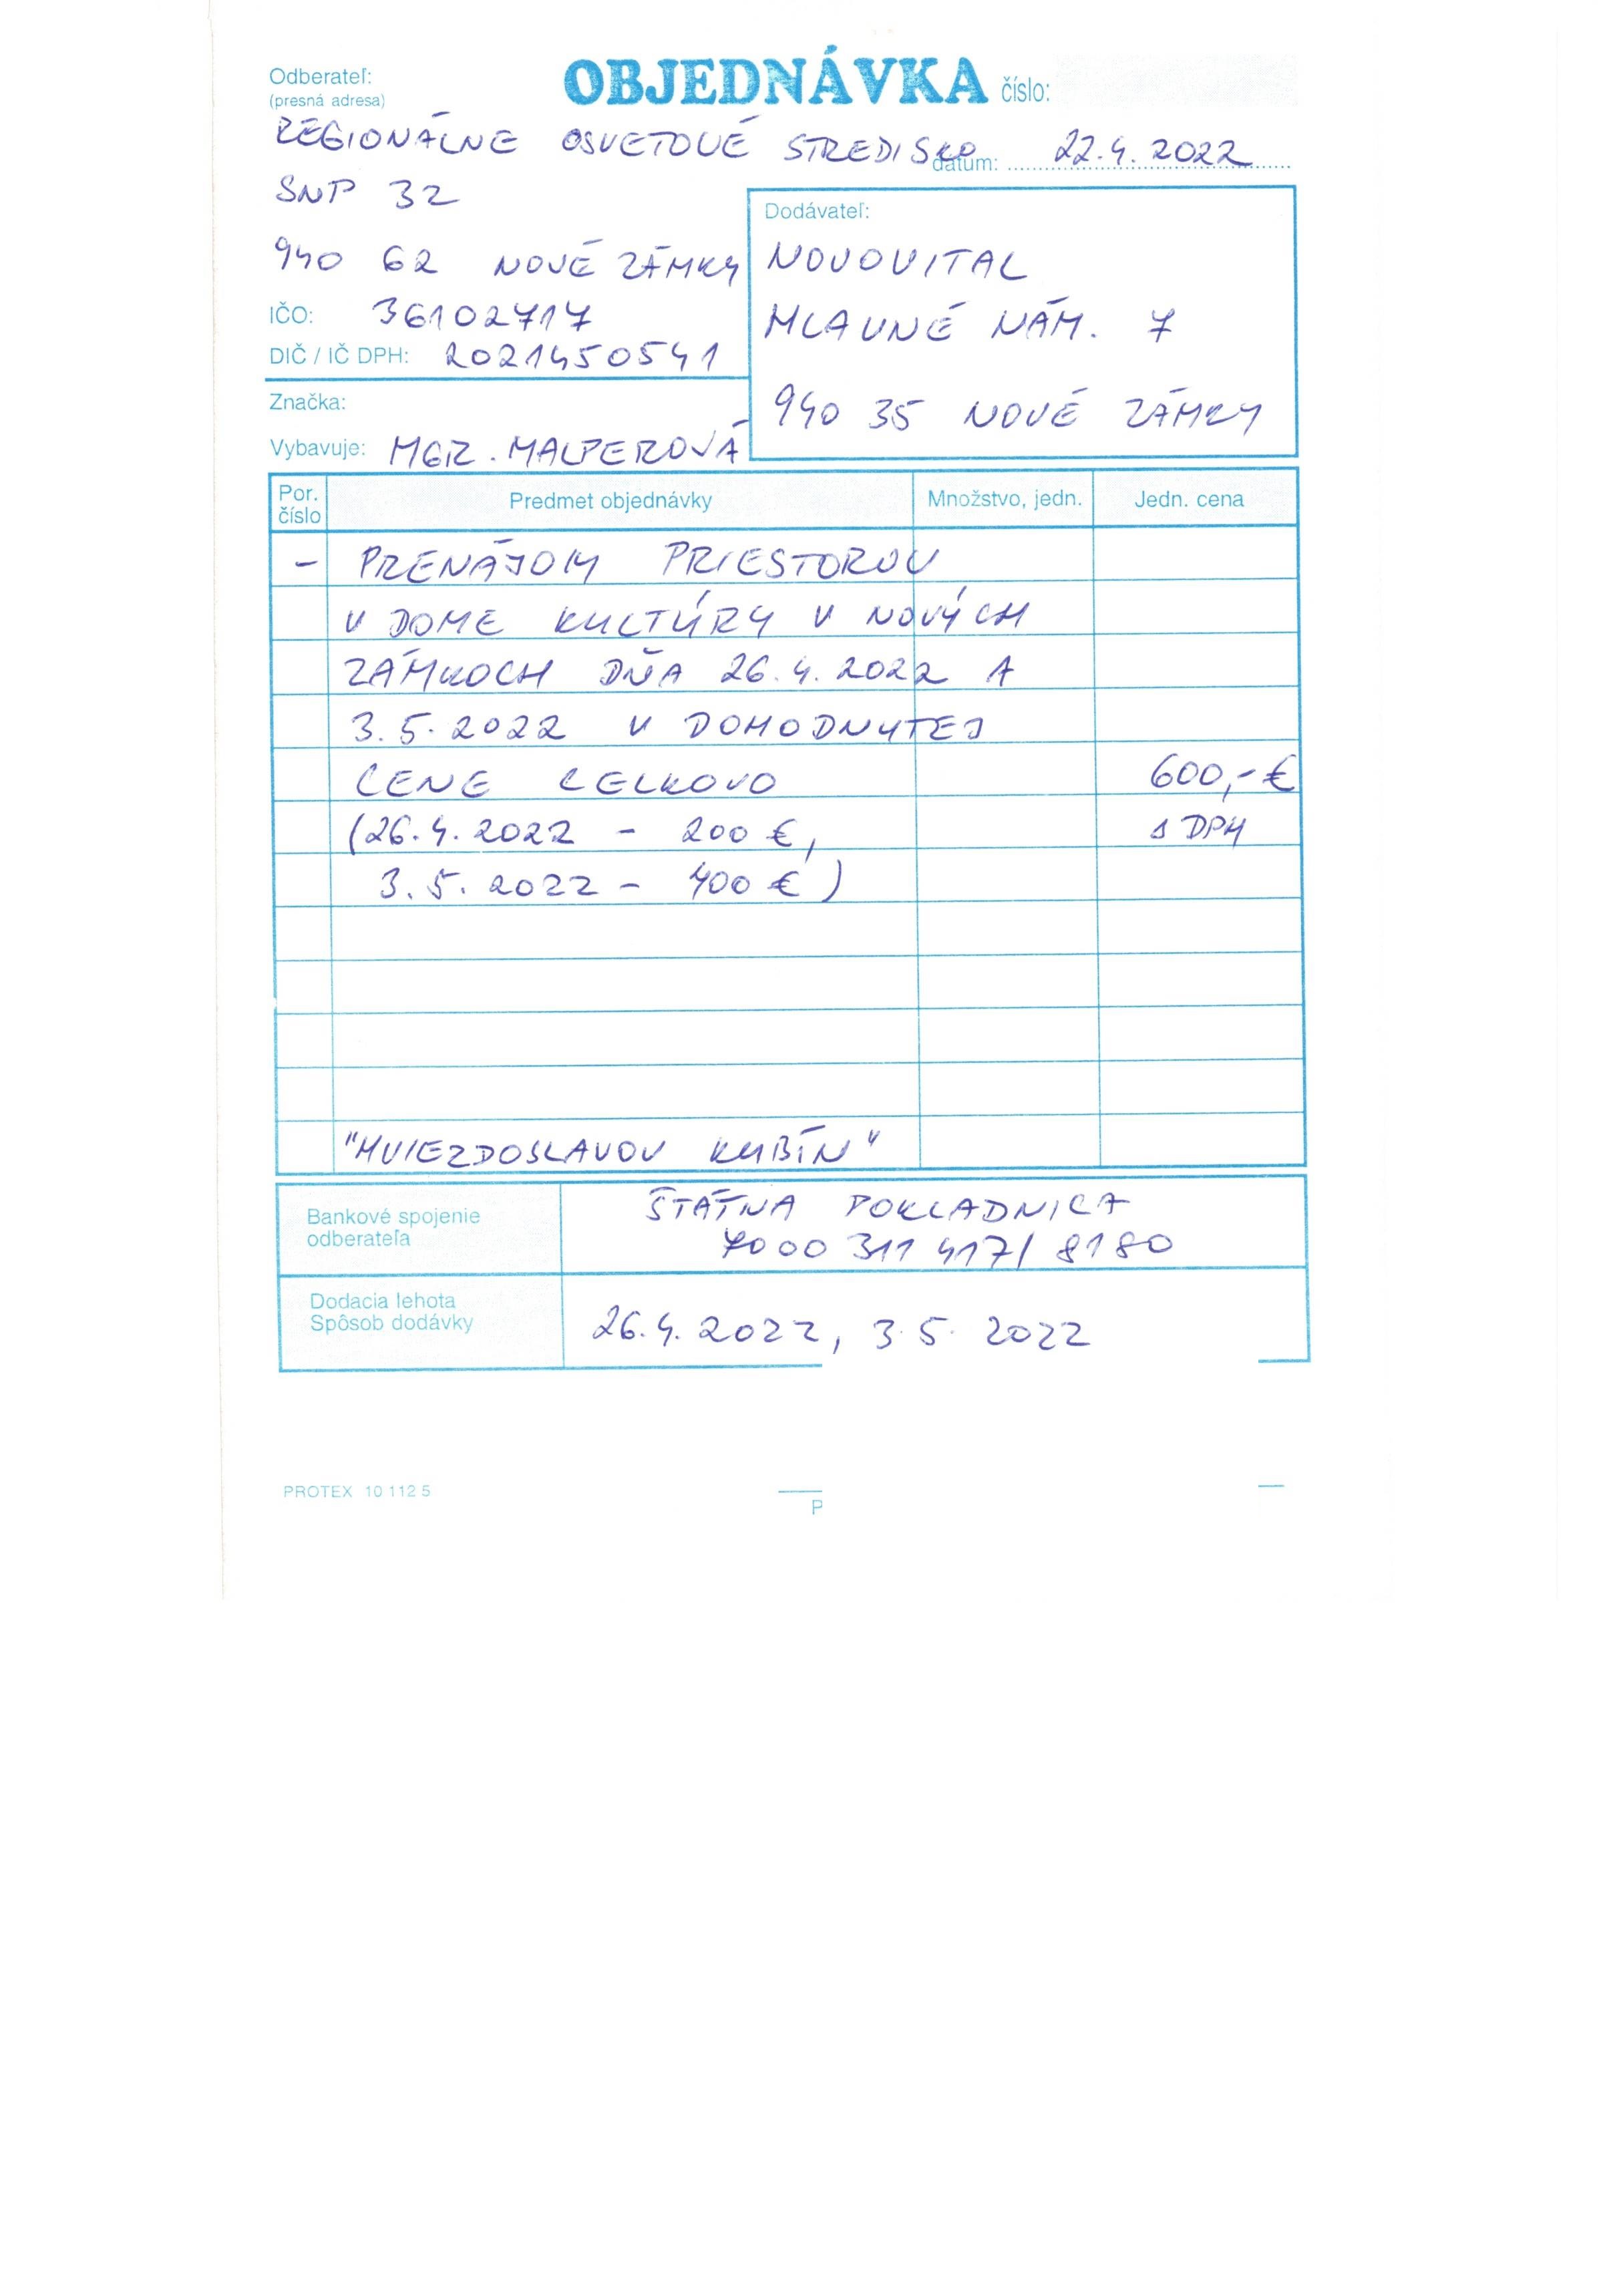 Odberateľ:
(presná adresa)
OBJEDNÁVKA číslo:
REGIONÁLNE OSVETOVÉ STREDISKO
dátum: 22.4.2022
SNP 32
940 62 NOVÉ ZÁMKY
IČO: 36102717
DIČ / IČ DPH: 2021450541
Značka:
Vybavuje: MGR. MALPEROVÁ
Dodávateľ:
NOVOVITAL
HLAVNÉ NÁM. 7
940 35 NOVÉ ZÁMKY
Por. číslo Predmet objednávky Množstvo, jedn. Jedn. cena
- PRENÁJOM PRIESTOROV
V DOME KULTÚRY V NOVÝCH
ZÁMKOCH DŇA 26.4.2022 A
3.5.2022 V DOHODNUTEJ
CENE CELKOVO 600,-€
(26.4.2022 - 200 €, s DPH
3.5.2022 - 400 €)
"HVIEZDOSLAVOV KUBÍN"
Bankové spojenie
odberateľa
ŠTÁTNA POKLADNICA
7000 311 417/ 8180
Dodacia lehota
Spôsob dodávky
26.4.2022, 3.5.2022
PROTEX 10 112 5
P